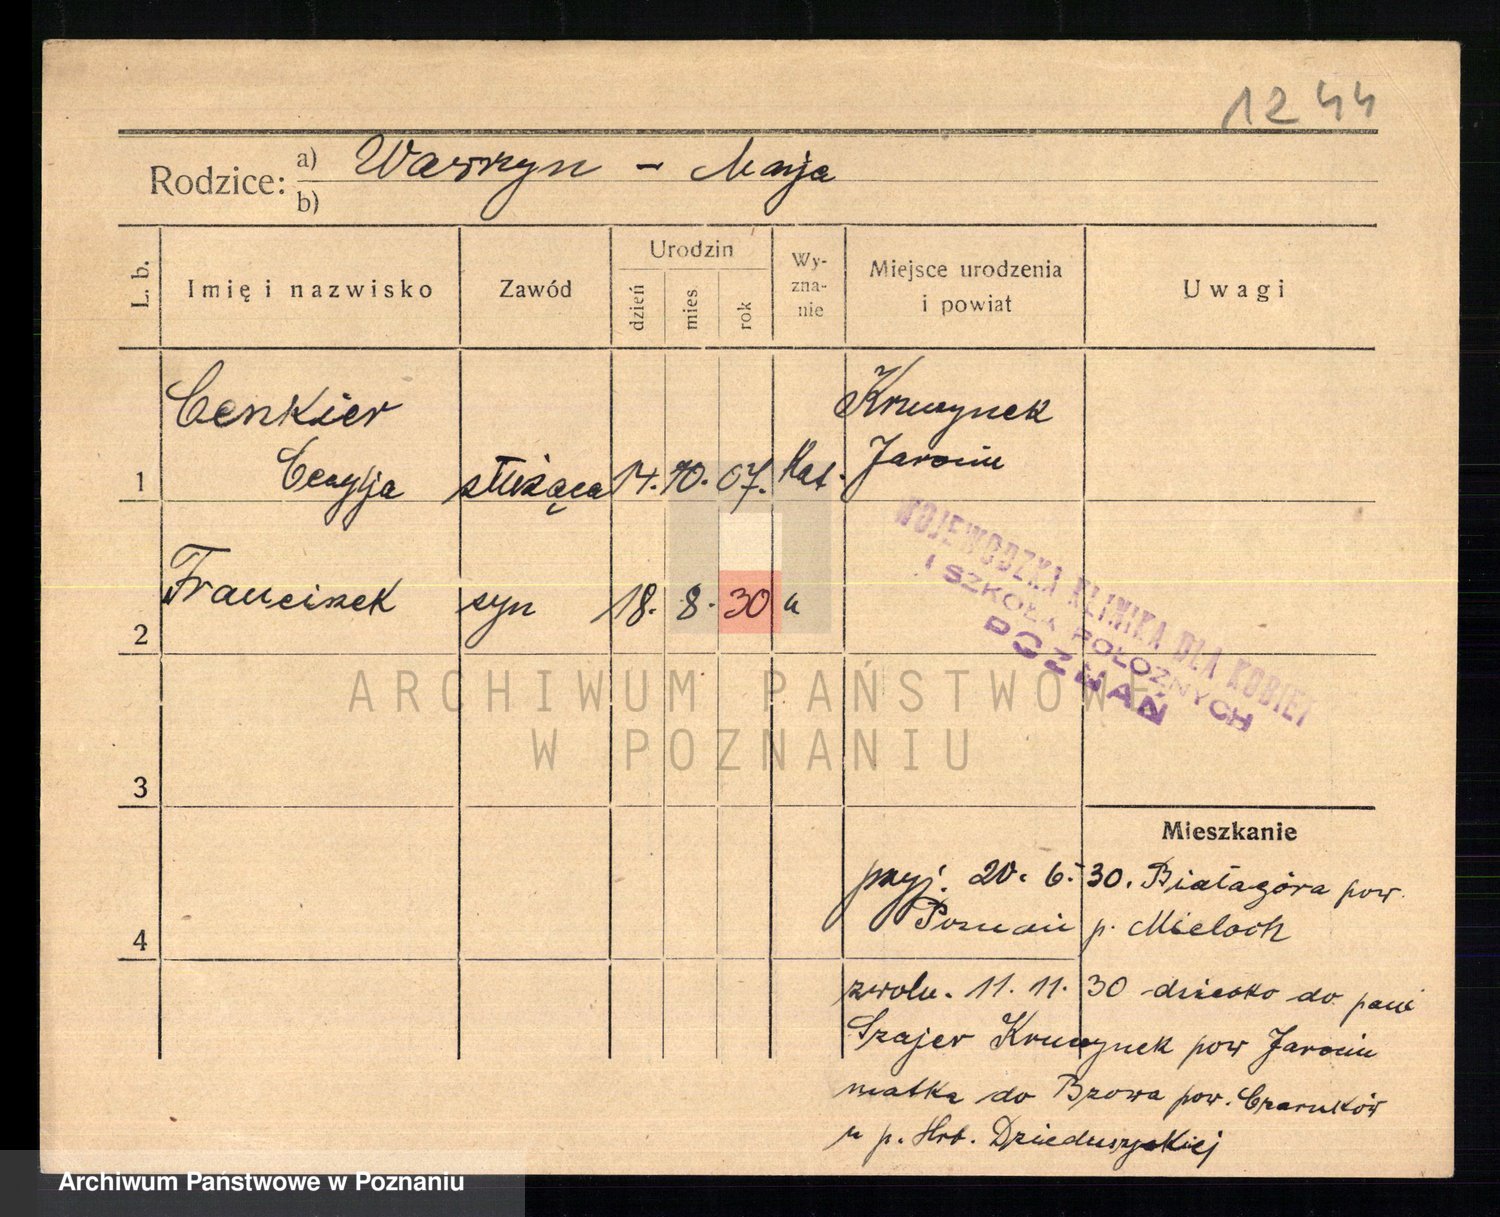 1244
Rodzice: a) Wawrzyn - Marja
b)
L. b.
Imię i nazwisko
Zawód
Urodzin
dzień
mies.
rok
Wy-
zna-
nie
Miejsce urodzenia
i powiat
Uwagi
Cenkier Kruczynek
1 Cecylja służąca 14. 10. 07. Kat. Jarocin
2 Franciszek syn 18. 8. 30 "
WOJEWÓDZKA KLINIKA DLA KOBIET
I SZKOŁA POŁOŻNYCH
POZNAŃ
ARCHIWUM PAŃSTWOWE
W POZNANIU
3
Mieszkanie
przyj. 20. 6. 30. Białagóra pow.
4 Poznań p. Mieloch
zwoln. 11. 11. 30 dziecko do pani
Szajer Kruczynek pow Jarocin
matka do Brzowa pow. Czarnków
u p. Hrb. Dzieduszyckiej
Archiwum Państwowe w Poznaniu